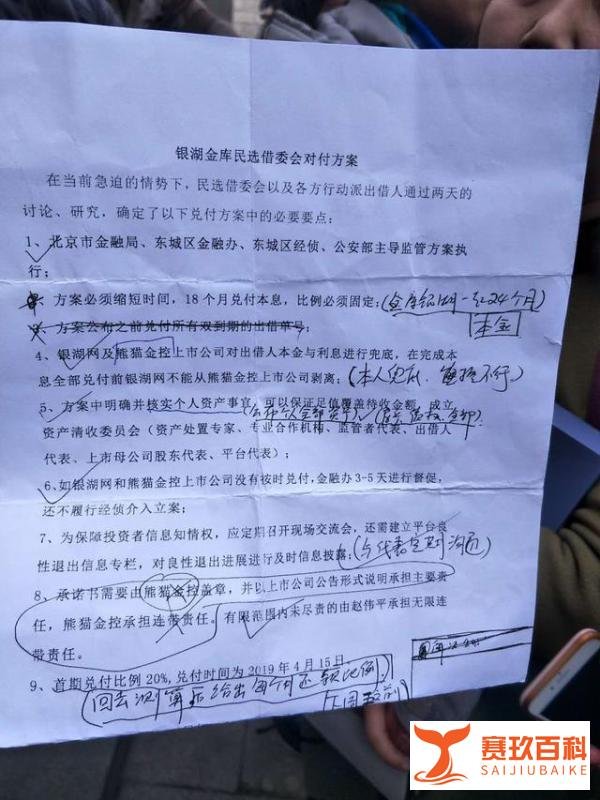 银湖金库民选借委会对付方案
在当前急迫的情势下，民选借委会以及各方行动派出借人通过两天的
讨论、研究，确定了以下兑付方案中的必要要点：
1、北京市金融局、东城区金融办、东城区经侦、公安部主导监管方案执
行；
方案必须缩短时间，18个月兑付本息，比例必须固定；(金库银湖一起24个月)
本金
方案公布之前兑付所有双到期的出借单号；
4、银湖网及熊猫金控上市公司对出借人本金与利息进行兜底，在完成本
息全部兑付前银湖网不能从熊猫金控上市公司剥离；(本人兜底、
不行)
5、方案中明确并核实个人资产事宜，可以保证足值覆盖待收金额，成立
资产清收委员会（资产处置专家、专业合作机构、监管者代表、出借人
代表、上市母公司股东代表、平台代表）；
6、如银湖网和熊猫金控上市公司没有按时兑付，金融办3-5天进行督促，
还不履行经侦介入立案；
7、为保障投资者信息知情权，应定期召开现场交流会，还需建立平台良
性退出信息专栏，对良性退出进展进行及时信息披露；(与代表定期沟通)
8、承诺书需要由熊猫金控盖章，并以上市公司公告形式说明承担主要责
任，熊猫金控承担连带责任。有限范围内未尽责的由赵伟平承担无限连
带责任。
9、首期兑付比例20%，兑付时间为2019年4月15日
回去测算后给出每个月还款比例
下周五前
赛玖百科
SAIJIUBAIKE